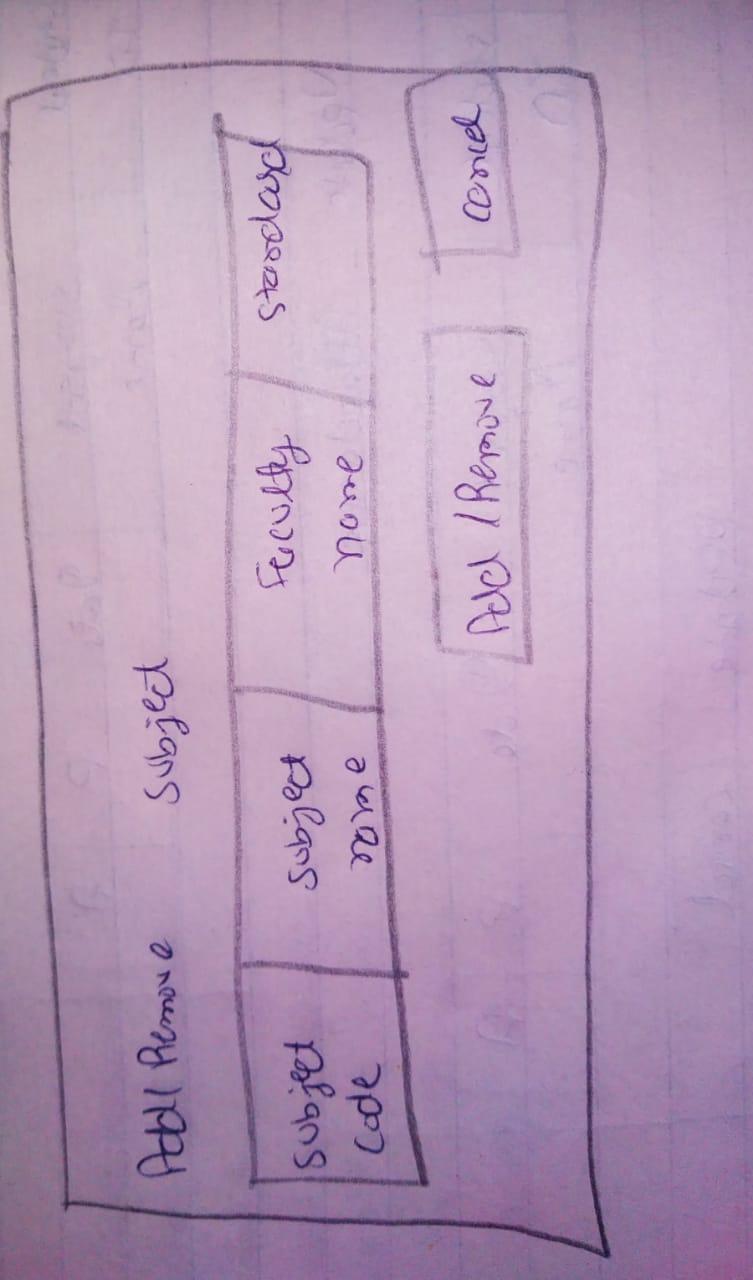 Add/Remove Subject
Subject code
Subject name
Faculty name
Standard
Add/Remove
Cancel